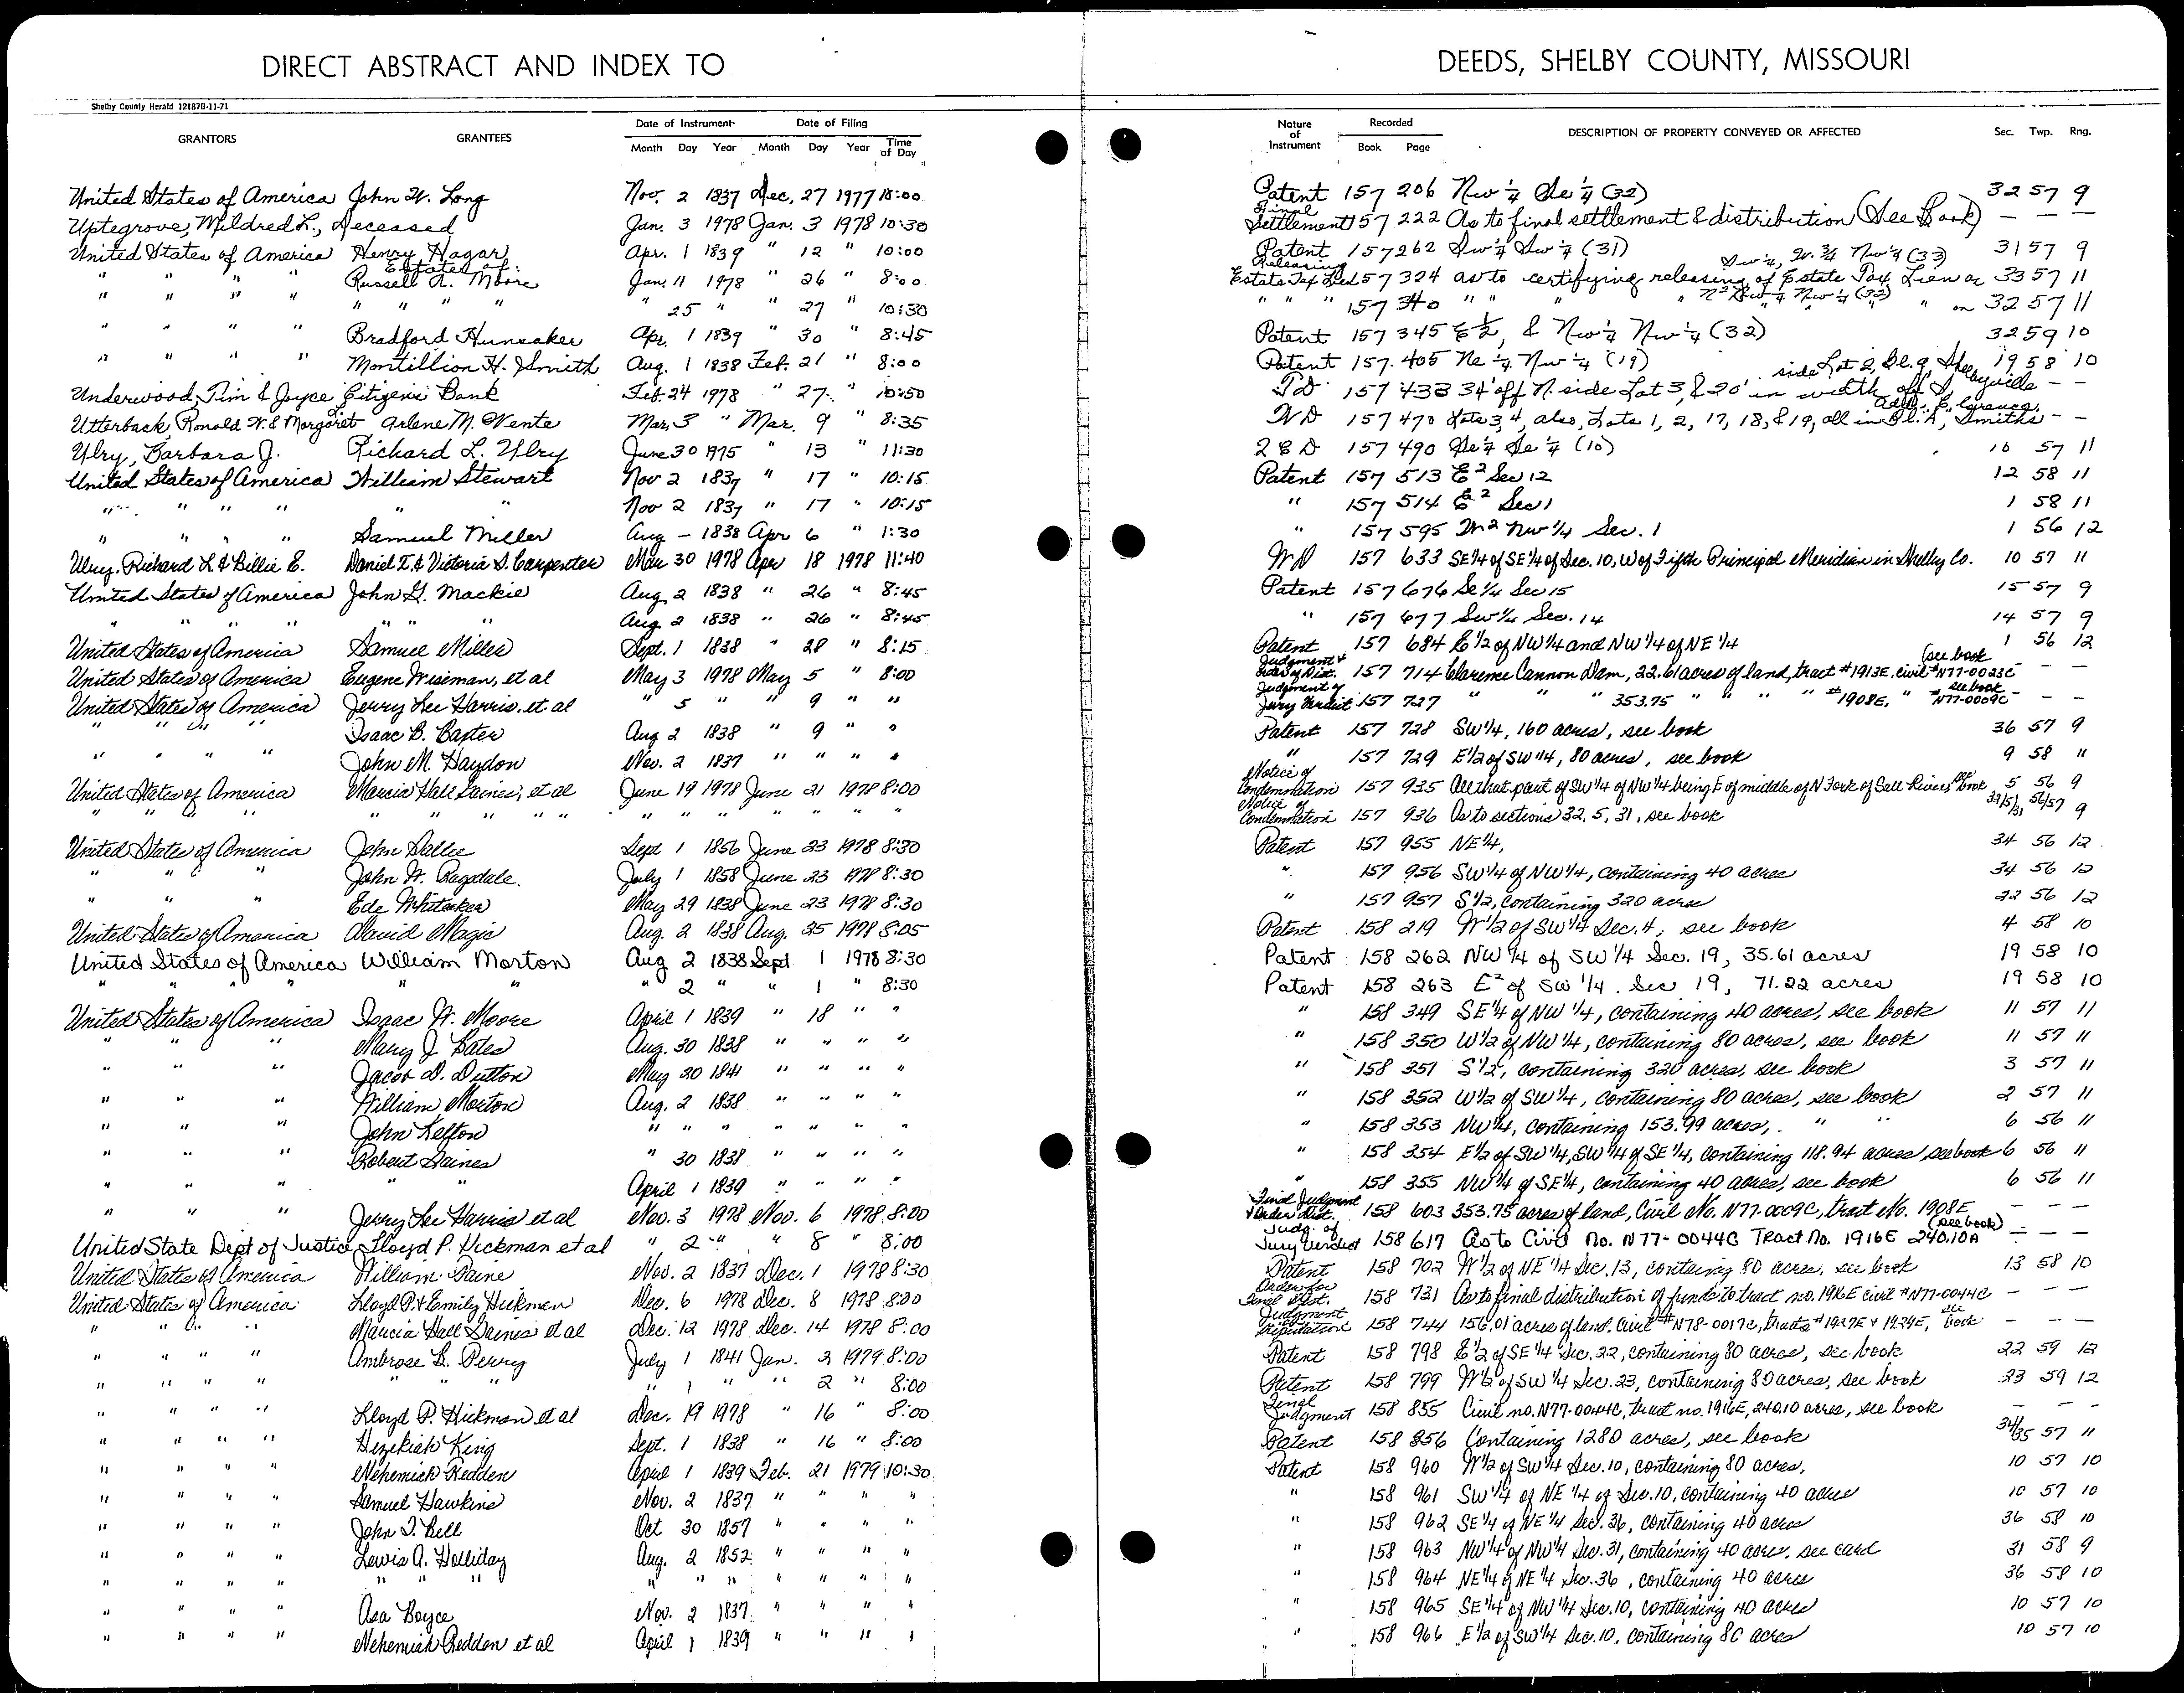 DIRECT ABSTRACT AND INDEX TO DEEDS, SHELBY COUNTY, MISSOURI
Shelby County Herald 12187B-11-71
GRANTORS GRANTEES Date of Instrument Date of Filing Nature of Instrument Recorded DESCRIPTION OF PROPERTY CONVEYED OR AFFECTED Sec. Twp. Rng.
Month Day Year Month Day Year Time of Day Book Page
United States of America John W. Long Nov. 2 1837 Dec. 27 1977 18:00 Patent 157 206 Nw ¼ Se ¼ (32) 32 57 9
Uptegrove, Mildred L., Deceased Jan. 3 1978 Jan. 3 1978 10:30 Final Settlement 157 222 As to final settlement & distribution (See Book) — — —
United States of America Henry Hagar Apr. 1 1839 " 12 " 10:00 Patent 157 262 Sw ¼ Sw ¼ (31) 31 57 9
" " " " Estates of: Russell A. Moore Jan. 11 1978 " 26 " 8:00 Releasing Estate Tax Lien 157 324 as to certifying releasing of Estate Tax Lien on Sw ¼, W. ¾ Nw ¼ (33) 33 57 11
" " " " " " " " " 25 " " 27 " 10:30 " " " 157 340 " " " " N² Sw ¼ Nw ¼ (32) " on 32 57 11
" " " " Bradford Hunsaker Apr. 1 1839 " 30 " 8:45 Patent 157 345 E ½, & Nw ¼ Nw ¼ (32) 32 59 10
" " " " Montillion H. Smith Aug. 1 1838 Feb. 21 " 8:00 Patent 157 405 Ne ¼ Nw ¼ (19) 19 58 10
Underwood, Tim & Joyce Citizens Bank Feb 24 1978 " 27 " 10:50 TD 157 433 34' off N. side Lot 3, & 20' in width off S. side Lot 2, Bl. 9, Shelbyville — —
Utterback, Ronald W. & Margaret Arlene M. Wente Mar. 3 " Mar. 9 " 8:35 WD 157 470 Lots 3, 4, also, Lots 1, 2, 17, 18, & 19, all in Bl. A, Smiths Add., E. Clarence — —
Ulry, Barbara J. Richard L. Ulry June 30 1975 " 13 " 11:30 2 C D 157 490 Se ¼ Se ¼ (10) 10 57 11
United States of America William Stewart Nov 2 1837 " 17 " 10:15 Patent 157 513 E² Sec 12 12 58 11
" " " " " Nov 2 1837 " 17 " 10:15 " 157 514 E² Sec 1 1 58 11
" " " " Samuel Miller Aug — 1838 Apr 6 " 1:30 " 157 595 W² Nw ¼ Sec. 1 1 56 12
Ulry, Richard L. & Billie E. Daniel T. & Victoria S. Carpenter Mar 30 1978 Apr 18 1978 11:40 WD 157 633 SE¼ of SE¼ of Sec. 10, W of Fifth Principal Meridian in Shelby Co. 10 57 11
United States of America John G. Mackie Aug 2 1838 " 26 " 8:45 Patent 157 676 Se ¼ Sec 15 15 57 9
" " " " " " " Aug 2 1838 " 26 " 8:45 " 157 677 Sw ¼ Sec. 14 14 57 9
United States of America Samuel Miller Sept. 1 1838 " 28 " 8:15 Patent 157 684 E ½ of NW ¼ and NW ¼ of NE ¼ 1 56 12
United States of America Eugene Wiseman, et al May 3 1978 May 5 " 8:00 Judgment & Order of Dist. 157 714 Clarence Cannon Dam, 22.61 acres of land, tract #1913E, civil #N77-0023C (see book — — —
United States of America Jerry Lee Harris, et al " 5 " " 9 " " Judgment of Jury Verdict 157 727 " " " 353.75 " " " " #1908E, " #N77-0009C see book — — —
" " " " Isaac B. Baxter Aug 2 1838 " 9 " " Patent 157 728 SW¼, 160 acres, see book 36 57 9
" " " " John M. Haydon Nov. 2 1837 " " " " " 157 729 E½ of SW¼, 80 acres, see book 9 58 11
United States of America Marcia Hall Gaines, et al June 19 1978 June 21 1978 8:00 Notice of Condemnation 157 935 All that part of SW¼ of NW¼ being E of middle of N Fork of Salt River, see book 5 56 9
" " " " " " " " " " " " " " " " Notice of Condemnation 157 936 As to sections 32, 5, 31, see book 32/5/31 56/57 9
United States of America John Sallee Sept 1 1856 June 23 1978 8:30 Patent 157 955 NE¼, 34 56 12
" " " John W. Ragsdale July 1 1858 June 23 1978 8:30 " 157 956 SW¼ of NW¼, containing 40 acres 34 56 12
" " " Ede Whitaker May 29 1838 June 23 1978 8:30 " 157 957 S½, containing 320 acres 22 56 12
United States of America David Magie Aug. 2 1838 Aug. 25 1978 8:05 Patent 158 219 W½ of SW¼ Sec. 4, see book 4 58 10
United States of America William Morton Aug 2 1838 Sept 1 1978 8:30 Patent 158 262 NW ¼ of SW ¼ Sec. 19, 35.61 acres 19 58 10
" " " " " " " 2 " " 1 " 8:30 Patent 158 263 E² of SW ¼. Sec 19, 71.22 acres 19 58 10
United States of America Isaac W. Moore April 1 1839 " 18 " " " 158 349 SE¼ of NW ¼, containing 40 acres, see book 11 57 11
" " " Mary J Bates Aug. 30 1838 " " " " " 158 350 W½ of NW ¼, containing 80 acres, see book 11 57 11
" " " Jacob D. Dutton May 20 1841 " " " " " 158 351 S½, containing 320 acres, see book 3 57 11
" " " William Morton Aug. 2 1838 " " " " " 158 352 W½ of SW¼, containing 80 acres, see book 2 57 11
" " " John Kelton " " " " " " " " 158 353 NW¼, containing 153.99 acres, " " 6 56 11
" " " Robert Gaines " 30 1838 " " " " " 158 354 E½ of SW¼, SW¼ of SE¼, containing 118.94 acres, see book 6 56 11
" " " " " April 1 1839 " " " " " 158 355 NW¼ of SE¼, containing 40 acres, see book 6 56 11
" " " Jerry Lee Harris et al Nov. 3 1978 Nov. 6 1978 8:00 Final Judgment & Order Dist. 158 603 353.75 acres of land, Civil No. N77-0009C, tract No. 1908E — — —
United State Dept of Justice Lloyd P. Hickman et al " 2 " " 8 " 8:00 Judg. of Jury Verdict 158 617 As to Civil No. N77-0044C Tract No. 1916E 240.10A (see book) — — —
United States of America William Paine Nov. 2 1837 Dec. 1 1978 8:30 Patent 158 702 W½ of NE¼ Sec. 13, containing 80 acres, see book 13 58 10
United States of America Lloyd P. & Emily Hickman Dec. 6 1978 Dec. 8 1978 8:00 Order for Final Dist. 158 731 As to final distribution of funds to tract no. 1916E civil #N77-0044C — — —
" " " " Marcia Hall Gaines et al Dec. 12 1978 Dec. 14 1978 8:00 Judgment 158 744 156.01 acres of land, Civil #N78-0017C, tracts #1927E & 1929E, see book — — —
" " " " Ambrose B. Perry July 1 1841 Jan. 2 1979 8:00 Patent 158 798 E½ of SE¼ Sec. 22, containing 80 acres, see book 22 59 12
" " " " " " " " 1 " " 2 " 8:00 Patent 158 799 W½ of SW¼ Sec. 23, containing 80 acres, see book 23 59 12
" " " " Lloyd P. Hickman et al Dec. 19 1978 " 16 " 8:00 Final Judgment 158 855 Civil no. N77-0044C, tract no. 1916E, 240.10 acres, see book — — —
" " " " Hezekiah King Sept. 1 1838 " 16 " 8:00 Patent 158 856 Containing 1280 acres, see book 34/35 57 11
" " " " Nehemiah Redden April 1 1839 Feb. 21 1979 10:30 Patent 158 960 W½ of SW¼ Sec. 10, containing 80 acres, 10 57 10
" " " " Samuel Hawkins Nov. 2 1837 " " " " " 158 961 SW¼ of NE¼ of Sec. 10, containing 40 acres 10 57 10
" " " " John T. Bell Oct 30 1857 " " " " " 158 962 SE¼ of NE¼ Sec. 36, containing 40 acres 36 58 10
" " " " Lewis A. Holliday Aug. 2 1852 " " " " " 158 963 NW¼ of NW¼ Sec. 31, containing 40 acres, see card 31 58 9
" " " " " " " " " " " " " " " 158 964 NE¼ of NE¼ Sec. 36, containing 40 acres 36 58 10
" " " " Asa Boyce Nov. 2 1837 " " " " " 158 965 SE¼ of NW¼ Sec. 10, containing 40 acres 10 57 10
" " " " Nehemiah Redden et al April 1 1839 " " " " " 158 966 E½ of SW¼ Sec. 10, containing 80 acres 10 57 10